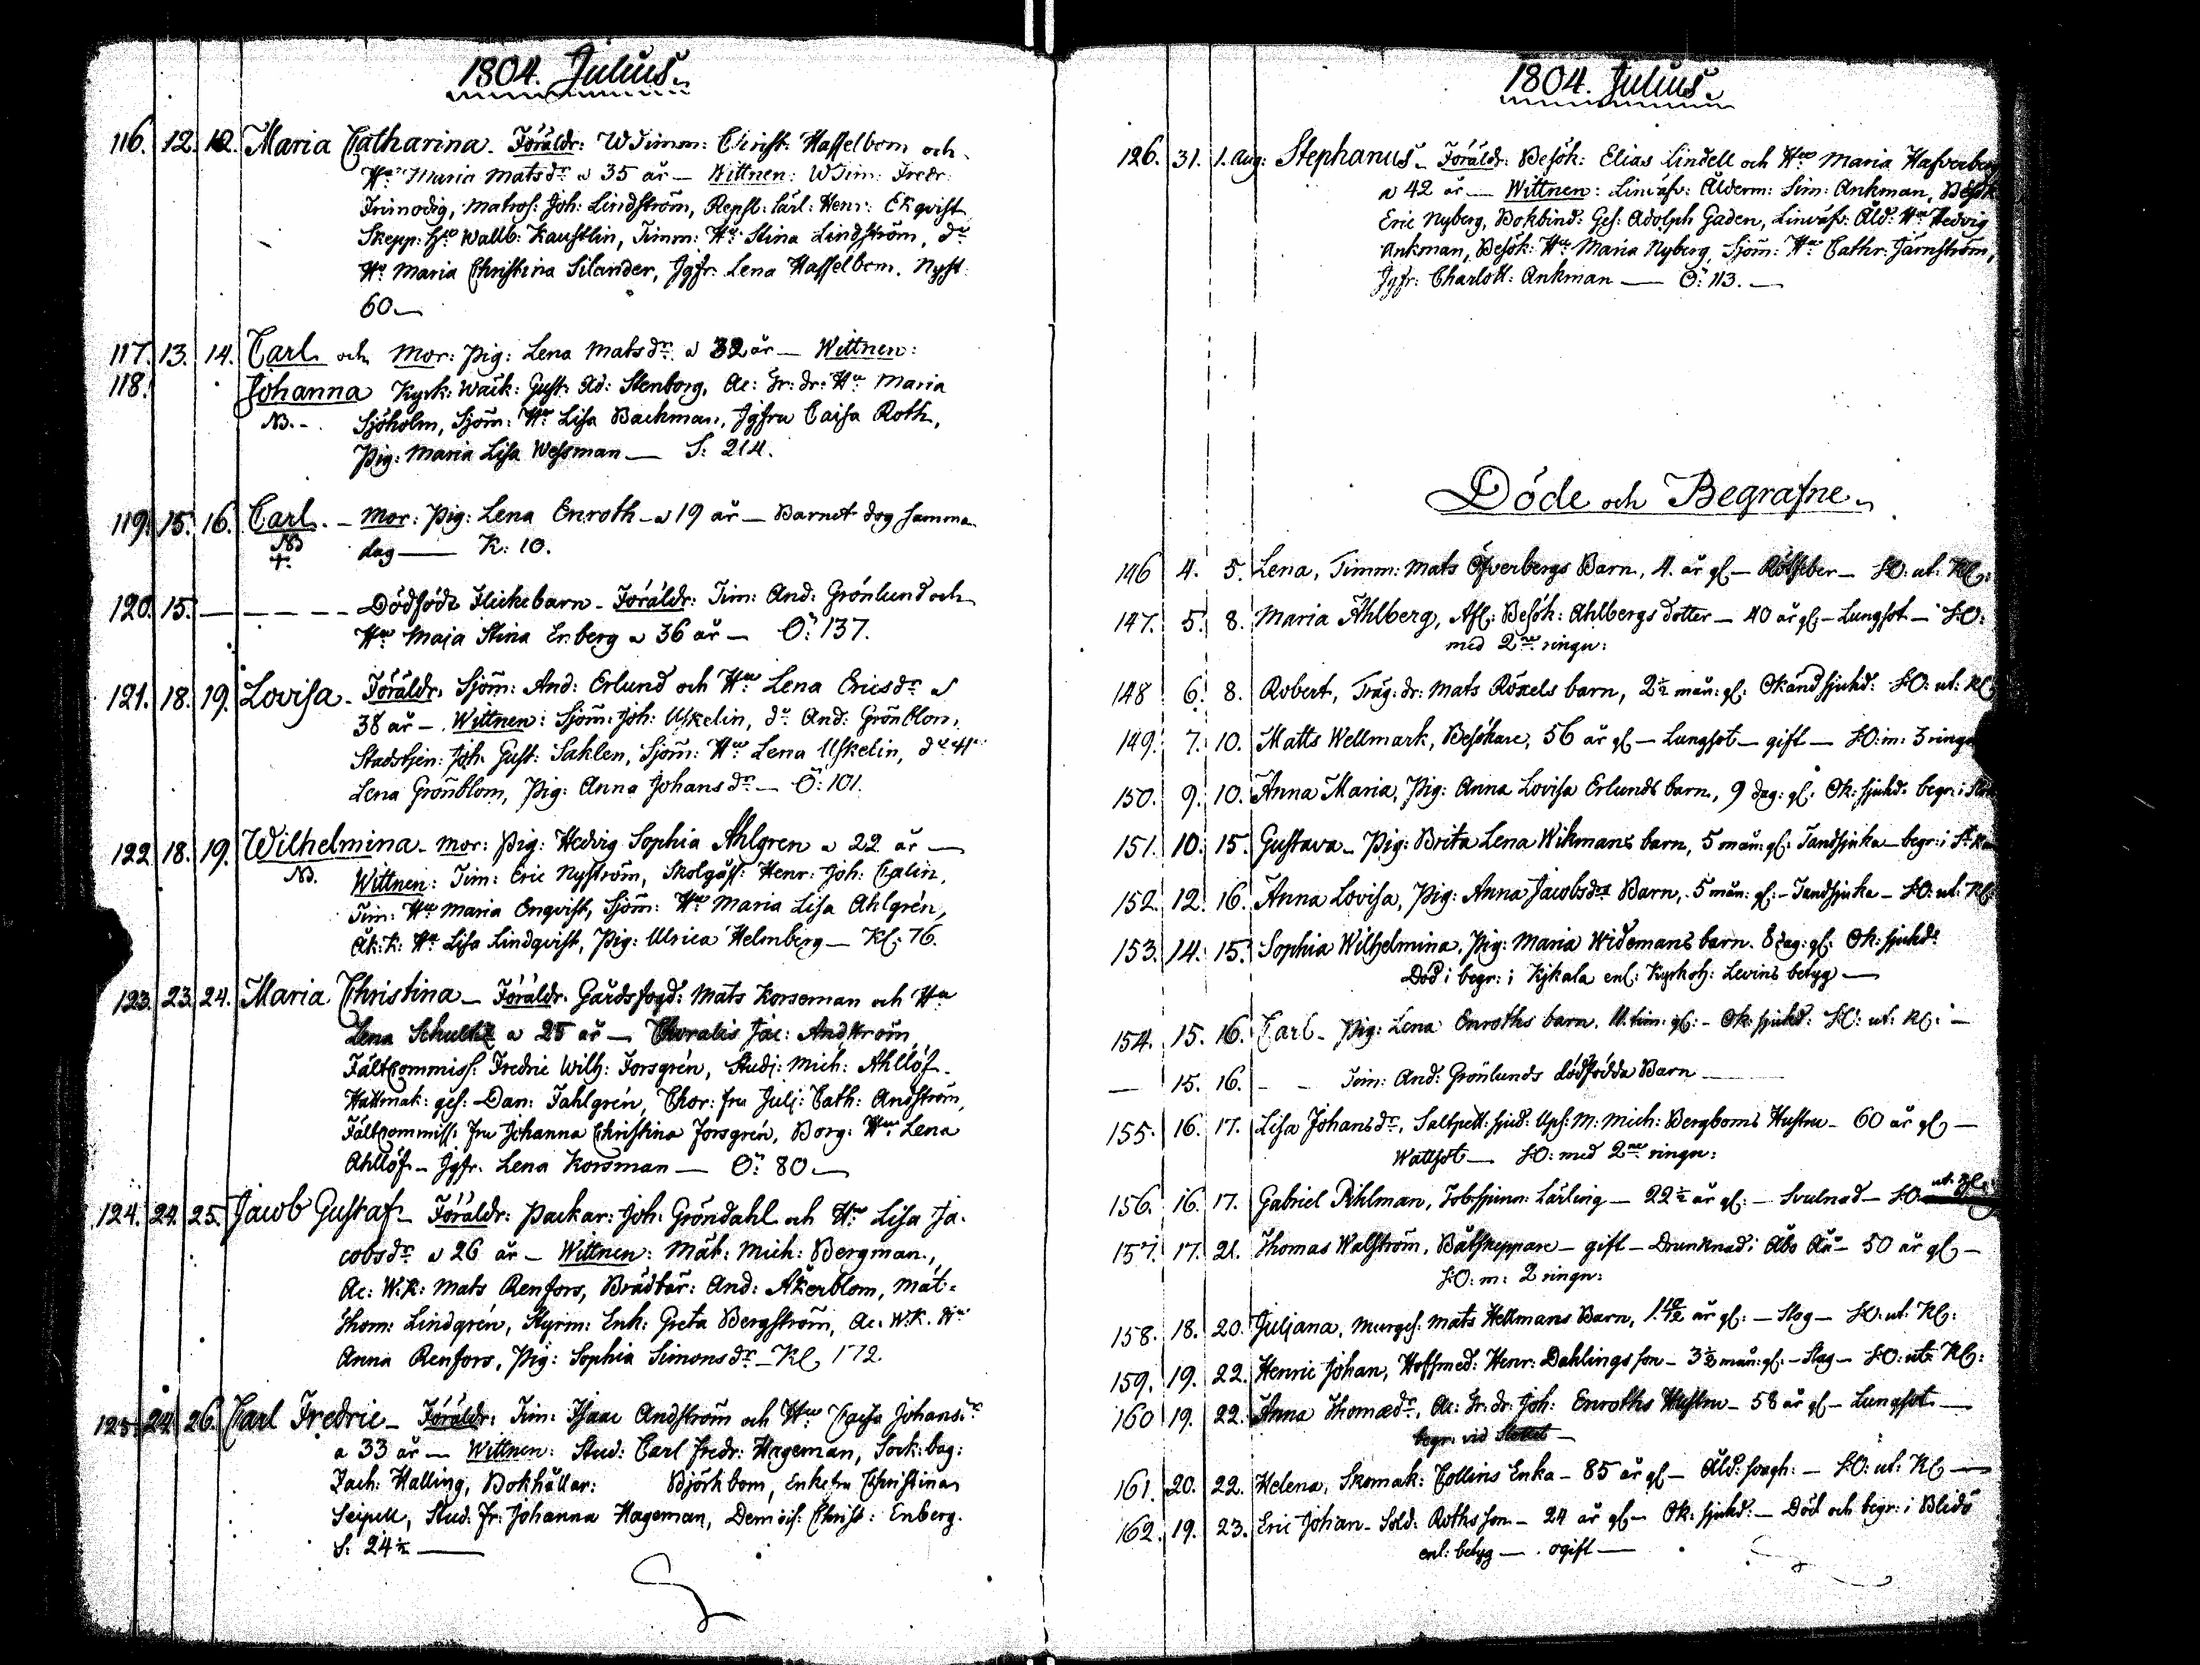 1804. Julius.
116. 12. 12. Maria Catharina. Föräldr: WTimm: Christ: Hasselbom och
Hu Maria Matsdr a 35 år — Wittnen: WTim: Fredr:
Frimodig, Matros: Joh: Lindström, Repsl: lärl: Henr: Ekqvist
Skepp: Wallb: Kaustlin, Timm: Hu Stina Lindström, do
Hu Maria Christina Silander, Jgfr: Lena Hasselbom. Nyst:
60 —
117. 13. 14. Carl och Mor: Pig: Lena Matsdr a 32 år — Wittnen:
118. Johanna Kyrk: Wack: Gust: Ad: Stenborg, Ac: Gr: dr: Hu Maria
NB. - Sjöholm, Sjöm: Hu Lisa Backman, Jgfru Caisa Roth,
Pig: Maria Lisa Wessman — S: 214.
119. 15. 16. Carl. - Mor: Pig: Lena Enroth - a 19 år — Barnet dog samma
NB dag — K: 10.
120. 15. — — — — Dödfödt Flickebarn - Föräldr: Tim: And: Grönlund och
Hu Maja Stina Enberg a 36 år — Ö: 137.
121. 18. 19. Lovisa - Föräldr: Sjöm: And: Erlund och Hu Lena Ericsdr a
38 år — Wittnen: Sjöm: Joh: Uskelin, do And: Grönblom,
Stadstjen: Joh: Gust: Sahlen, Sjöm: Hu Lena Uskelin, do Hu
Lena Grönblom, Pig: Anna Johansdr — Ö: 101.
122. 18. 19. Wilhelmina - Mor: Pig: Hedvig Sophia Ahlgren a 22 år —
NB. Wittnen: Tim: Eric Nyström, Skolgäss: Henr: Joh: Calin,
Tim: Hu Maria Enqvist, Sjöm: Hu Maria Lisa Ahlgrén,
Åk: k: Hu Lisa Lindqvist, Pig: Ulrica Helmberg — Kl: 76.
123. 23. 24. Maria Christina - Föräldr: Gårdsfogd: Mats Korseman och Hu
Lena Schultz a 25 år — Choralis Jac: Andström
Fältcommiss: Fredric Wilh: Forsgrén, Studj: Mich: Ahllöf -
Hattmak: ges: Dan: Fahlgrén, Chor: fru Julj: Cath: Andström,
Fältcommiss: Fru Johanna Christina Forsgrén, Borg: Hu Lena
Ahllöf - Jgfr: Lena Korsman — Ö: 80 —
124. 24. 25. Jacob Gustaf - Föräldr: Packar: Joh: Gröndahl och Hu Lisa Ja-
cobsdr a 26 år — Wittnen: Mät: Mich: Bergman,
Ac: W.k: Mats Renfors, Brädbär: And: Åkerblom, Mät:
Thom: Lindgrén, Styrm: Enk: Greta Bergström, Ac: W.K. Hu
Anna Renfors, Pig: Sophia Simonsdr — Kl, 172.
125. 24. 26. Carl Fredric - Föräldr: Tim: Isaac Andström och Hu Caisa Johansdr
a 33 år — Wittnen: Stud: Carl Fredr: Hageman, Sock: bag:
Zach: Halling, Bokhållar: Björkbom, Enkefru Christina
Seipell, Stud: Fr: Johanna Hageman, Demois: Christ: Enberg.
S: 24 ½ —
1804. Julius.
126. 31. 1. Aug: Stephanus - Föräldr: Besök: Elias Lindell och Hu Maria
a 42 år — Wittnen: Linväfv: Ålderm: Sim: Ankman, Besök
Eric Nyberg, Bokbind: Ges: Adolph Gaden, Linväfv: Åld: Hu Hedvig
Ankman, Besök: Hu Maria Nyberg, Sjöm: Hu Cathr: Järnström,
Jgfr: Charlott: Ankman — Ö: 113. —
Döde och Begrafne.
146 4. 5. Lena, Timm: Mats Öfverbergs Barn, 4. år gl — Rötfeber — SO: ut: Kl:
147. 5. 8. Maria Ahlberg, Afl: Besök: Ahlbergs dotter — 40 år gl: — Lungsot — SO:
med 2ne ringn:
148 6. 8. Robert, Träg: dr: Mats Röxels barn, 2 ½ mån: gl: Okänd sjukd: SO: ut: Kl:
149. 7. 10. Matts Wellmark, Besökare, 56 år gl — Lungsot — gift — SO: m: 3 ringn
150. 9. 10. Anna Maria, Pig: Anna Lovisa Erlunds barn, 9 dag: gl: Ok: sjukd: begr: i
151. 10. 15. Gustava - Pig: Brita Lena Wikmans barn, 5 mån: gl: Tandsjuka — begr: i
152. 12. 16. Anna Lovisa, Pig: Anna Jacobsdrs Barn, 5 mån: gl: — Tandsjuka — SO: ut: Kl:
153. 14. 15. Sophia Wilhelmina, Pig: Maria Widemans barn. 8 dag: gl: Ok: sjukd:
Död i begr: i Kjkala enl: Kyrkoh: Levins betyg —
154. 15. 16. Carl - Pig: Lena Enroths barn, 11. tim: gl: — Ok: sjukd: SO: ut: Kl: —
— 15. 16. - - Tim: And: Grönlunds dödfödda Barn —
155. 16. 17. Lisa Johansdr, Saltpett: sjud: Ups: M: Mich: Bergboms Hustru - 60 år gl —
Wattsot — SO: med 2ne ringn:
156. 16. 17. Gabriel Pihlman, Tob: spinn: Lärling — 22 ½ år gl: — Svulnad — SO: ut: Kl:
157. 17. 21. Thomas Walström, Båtskeppare — gift — Drunknad i Åbo Å — 50 år gl —
SO: m: 2 ringn:
158. 18. 20. Juljana, Murges: Mats Hellmans Barn, 1 10/12 år gl: — Slag — SO: ut: Kl:
159. 19. 22. Henric Johan, Hofsmed: Henr: Dahlings son — 3 ½ mån: gl: — Slag — SO: ut: Kl:
160 19. 22. Anna Thomædr, Ac: Gr: dr: Joh: Enroths Hustru — 58 år gl — Lungsot —
begr: vid Slottet —
161. 20. 22. Helena, Skomak: Collins Enka — 85 år gl — Åld: svagh: — SO: ut: Kl —
162. 19. 23. Eric Johan - Sold: Roths son — 24 år gl — Ok: sjukd: — Död och begr: i Blidö
enl: betyg — ogift —